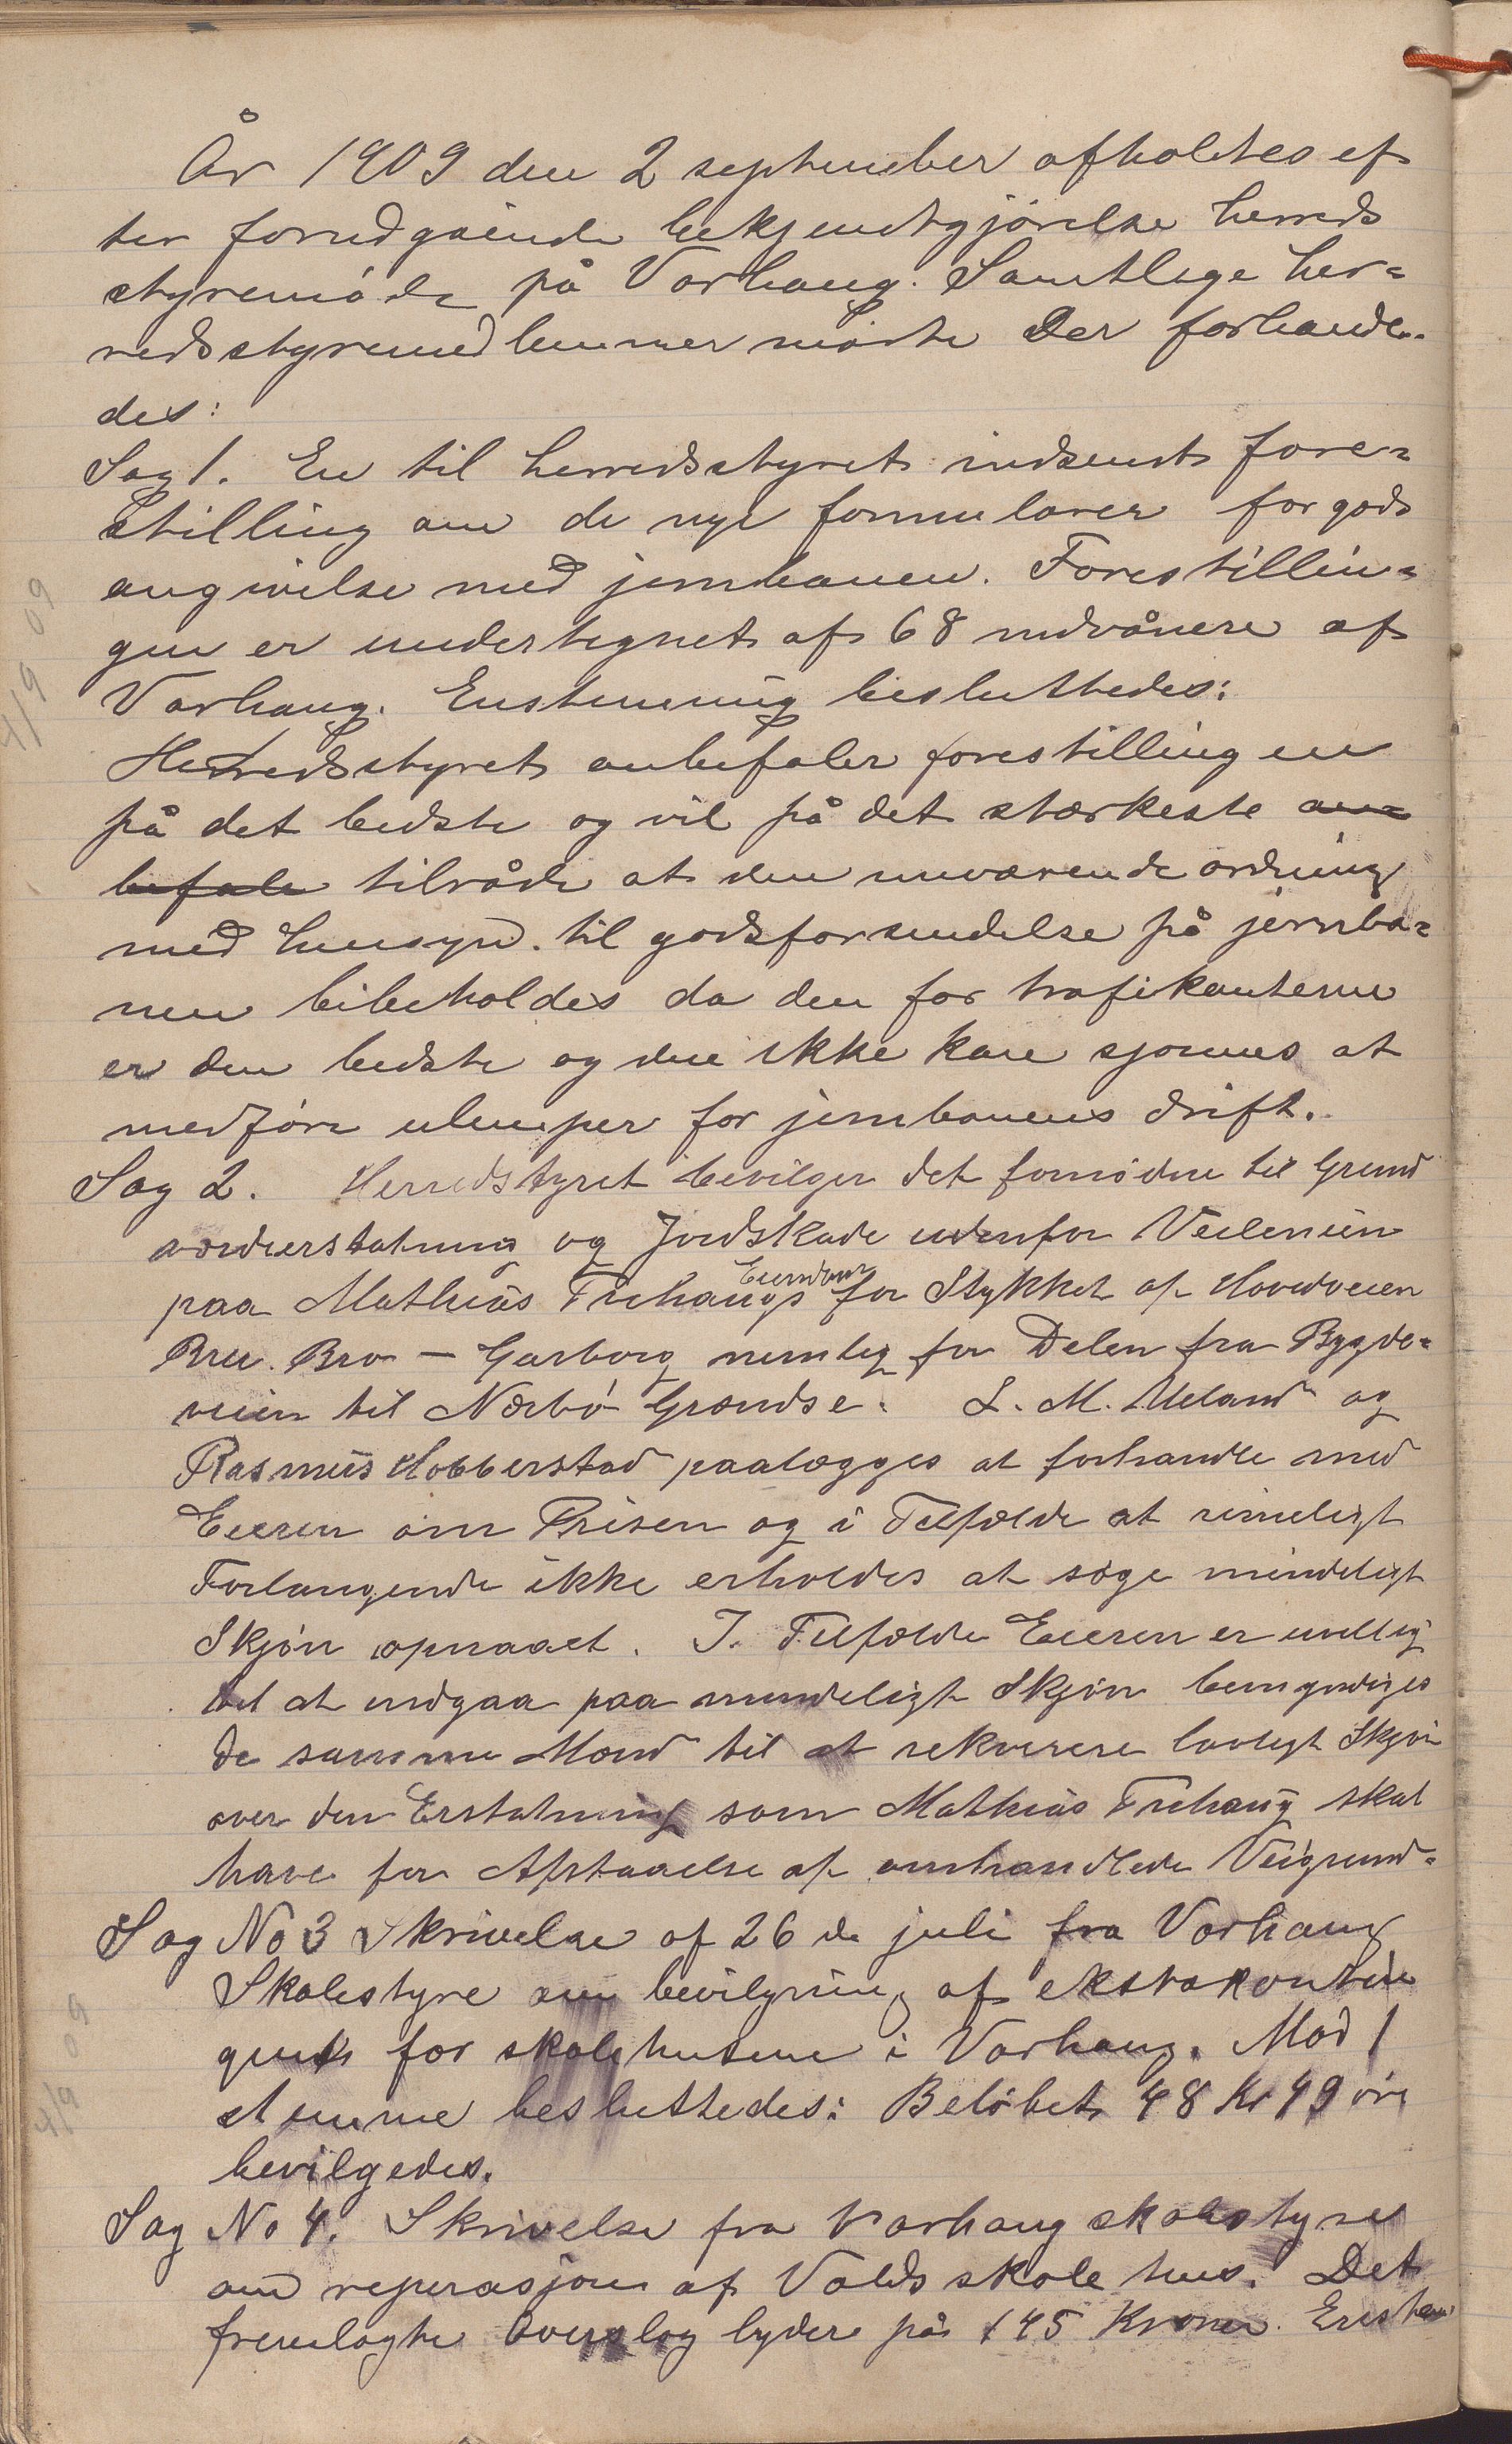 År 1909 den 2 september afholdtes ef
ter forudgående bekjendtgjørelse herreds
styremøde på Varhaug. Samtlige her=
redsstyremedlemmer mødte Der forhandle-
des:
Sag 1. En til herredsstyret indsendt fore=
stilling om de nye formularer for gods
angivelse med jernbanen. Forestillin=
gen er undertegnet af 68 indvånere af
Varhaug. Enstemmig besluttedes:
Herredsstyret anbefaler forestillingen
på det bedste og vil på det stærkeste an=
befale tilråde at den nuværende ordning
med hensyn til godsforsendelse på jernba=
nen bibeholdes da den for trafikanterne
er den bedste og den ikke kan sjønnes at
medføre ulemper for jernbanens drift.
Sag 2. Herredstyret bevilger det fornødne til Grund
værdierstatning og Jordskade udenfor Veilenien
paa Mathias Tuhaugs Eiendom for Stykket af Hovedveien
Bru. Bro - Garborg nemlig for Delen fra Bygde=
veien til Nærbø Grændse. L. M. Ueland og
Rasmus Hobberstad paalægges at forhandle med
Eieren om Prisen og i Tilfælde at rimeligt
Forlangende ikke erholdes at søge mindeligt
Skjøn opnaaet. I Tilfælde Eieren er uvillig
til at indgaa paa mindeligt Skjøn bemyndiges
de samme Mænd til at rekvirere lovligt Skjøn
over den Erstatning som Mathias Tuhaug skal
have for Afstaaelse af omhandlede Veigrund.
Sag No 3 Skrivelse af 26 de juli fra Varhaug
Skolestyre om bevilgning af ekstrakontin
gent for skolehusene i Varhaug. Mod 1
stemme besluttedes: Beløbet 48 Kr 49 øre
bevilgedes.
Sag No 4. Skrivelse fra Varhaug skolestyre
om reperasjon af Valds skole hus. Det
fremlagte Overslag lyder på 145 Kroner. Enstem
4/9 09
4/9 09